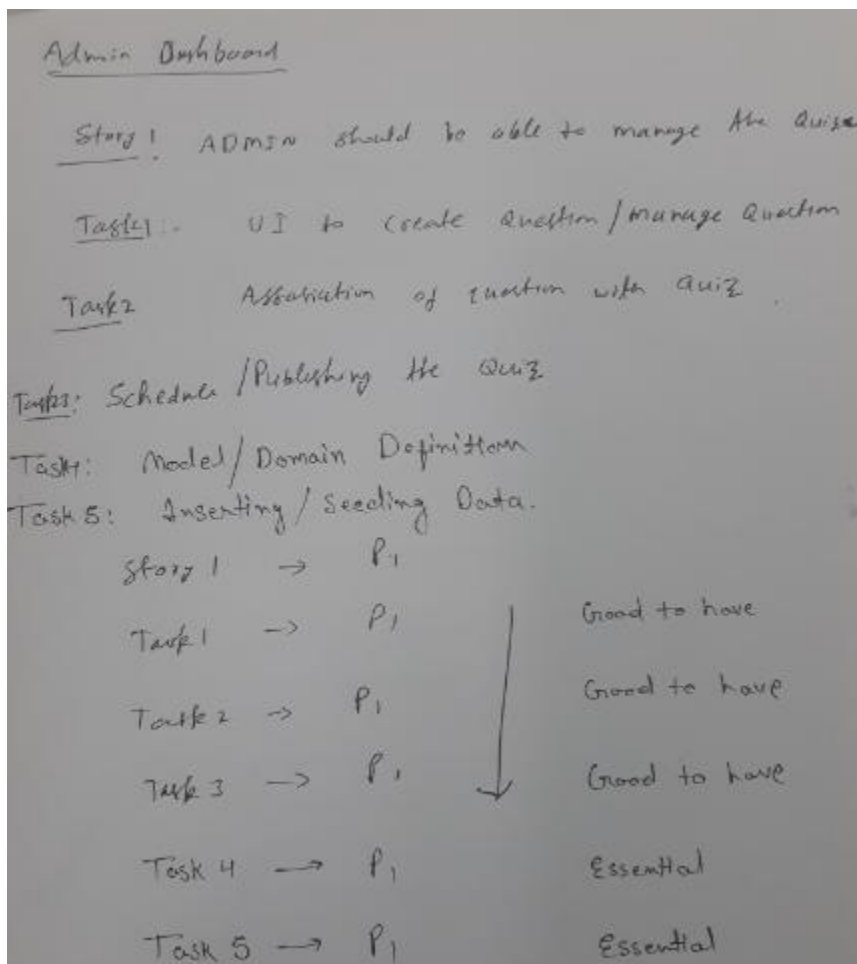 Admin Dashboard
Story 1: ADMIN should be able to manage the Quize
Task1:- UI to create Question/manage Question
Task2 Association of question with Quiz.
Task3: Schedule/Publishing the Quiz
Task4: Model/Domain Definition
Task 5: Inserting/Seeding Data.
Story 1 → P1
Task 1 → P1 Good to have
Task 2 → P1 Good to have
Task 3 → P1 Good to have
Task 4 → P1 Essential
Task 5 → P1 Essential